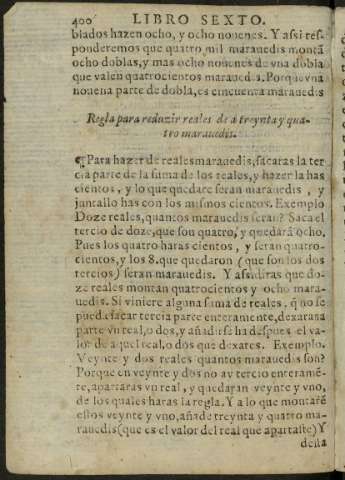 400 LIBRO SEXTO.
blados hazen ocho, y ocho nouenes. Y assi res-
ponderemos que quatro mil marauedis montã
ocho doblas, y mas ocho nouenes de vna dobla
que valen quatrocientos marauedis. Porque vna
nouena parte de dobla, es cincuenta marauedis
Regla para reduzir reales de a treynta y qua-
tro marauedis.
¶Para hazer de reales marauedis, sacaras la ter
cia parte de la suma de los reales, y hazer la has
cientos, y lo que quedare seran marauedis, y
juntallo has con los mismos cientos. Exemplo
Doze reales, quantos marauedis seran? Saca el
tercio de doze, que son quatro, y quedarã ocho.
Pues los quatro haras cientos, y seran quatro-
cientos, y los 8. que quedaron (que son los dos
tercios) seran marauedis. Y assi diras que do-
ze reales montan quatrocientos y ocho mara-
uedis. Si viniere alguna suma de reales, q̃ no se
pueda sacar tercia parte enteramente, dexaras a
parte vn real, o dos, y añadirse ha despues el va-
lor de aquel real, o dos que dexares. Exemplo.
Veynte y dos reales quantos marauedis son?
Porque en veynte y dos no ay tercio enteramẽ-
te, apartaras vn real, y quedaran veynte y vno,
de los quales haras la regla. Y a lo que montarẽ
estos veynte y vno, añade treynta y quatro ma-
rauedis (que es el valor del real que apartaste) Y
desta